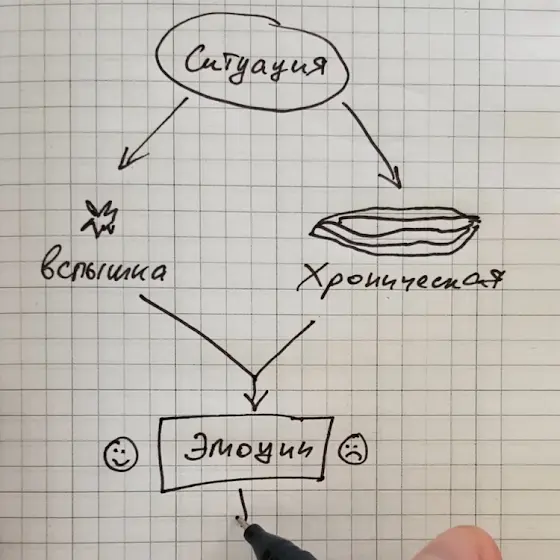 Ситуация
вспышка
Хроническая
Эмоции